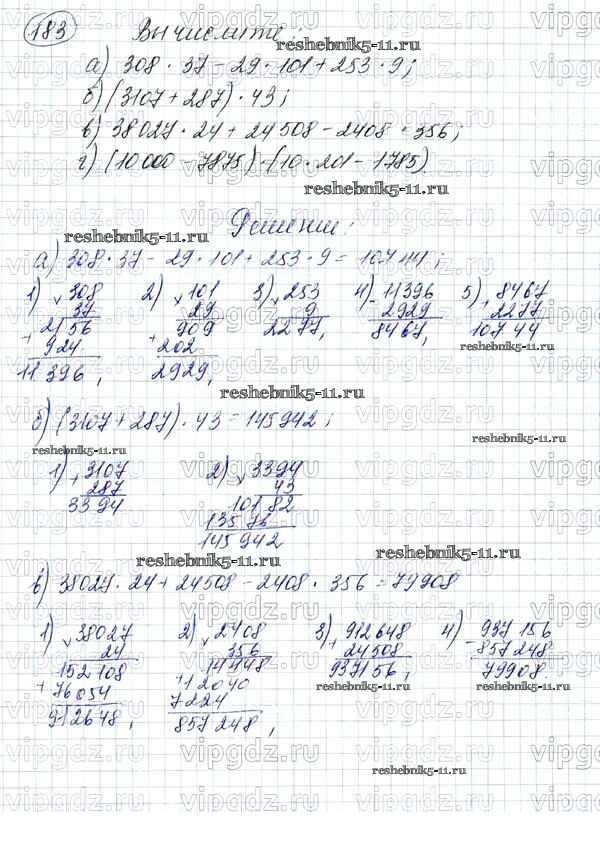 183 Вычислите:
reshebnik5-11.ru
а) 308 · 37 - 29 · 101 + 253 · 9;
б) (3107 + 287) · 43;
в) 38027 · 24 + 24508 - 2408 · 356;
г) (10 000 - 7875) · (10 · 201 - 1785).
reshebnik5-11.ru
Решение:
reshebnik5-11.ru
а) 308 · 37 - 29 · 101 + 253 · 9 = 10744;
1) × 308 2) × 101 3) × 253 4) - 11396 5) + 8467
37 29 9 2929 2277
2156 909 2277, 8467, 10744
+ 924 + 202 reshebnik5-11.ru
11396, 2929,
reshebnik5-11.ru
б) (3107 + 287) · 43 = 145942;
reshebnik5-11.ru
1) + 3107 2) × 3394
287 43
3394 10182
13576
145942
reshebnik5-11.ru reshebnik5-11.ru
в) 38027 · 24 + 24508 - 2408 · 356 = 79908
1) × 38027 2) × 2408 3) + 912648 4) - 937156
24 356 24508 857248
152108 14448 937156, 79908.
+ 76054 + 12040 reshebnik5-11.ru reshebnik5-11.ru
912648, 7224
857248,
reshebnik5-11.ru
vipgdz.ru